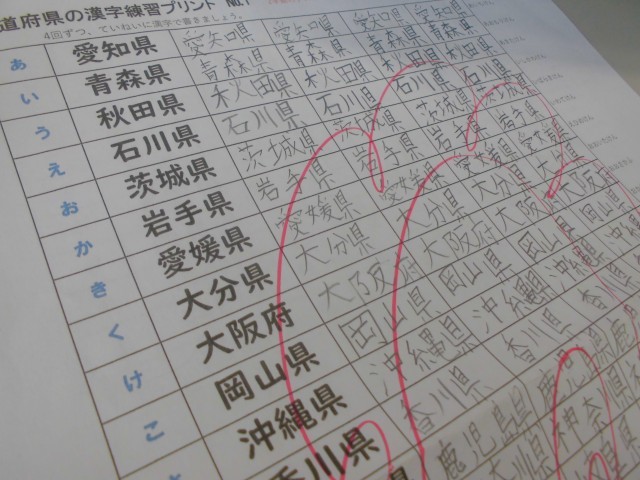 道府県の漢字練習プリント No.1
4回ずつ、ていねいに漢字で書きましょう。
あ 愛知県 愛知県 愛知県 愛知県 愛知県
い 青森県 青森県 青森県 青森県 青森県
う 秋田県 秋田県 秋田県 秋田県 秋田県
え 石川県 石川県 石川県 石川県 石川県
お 茨城県 茨城県 茨城県 茨城県 茨城県
か 岩手県 岩手県 岩手県 岩手県 岩手県
き 愛媛県 愛媛県 愛媛県 愛媛県 愛媛県
く 大分県 大分県 大分県 大分県 大分県
け 大阪府 大阪府 大阪府 大阪府 大阪府
こ 岡山県 岡山県 岡山県 岡山県 岡山県
沖縄県 沖縄県 沖縄県 沖縄県 沖縄
香川県 香川県 香川県 香川県
鹿児島県 鹿児島県 鹿
神奈川県 神奈県